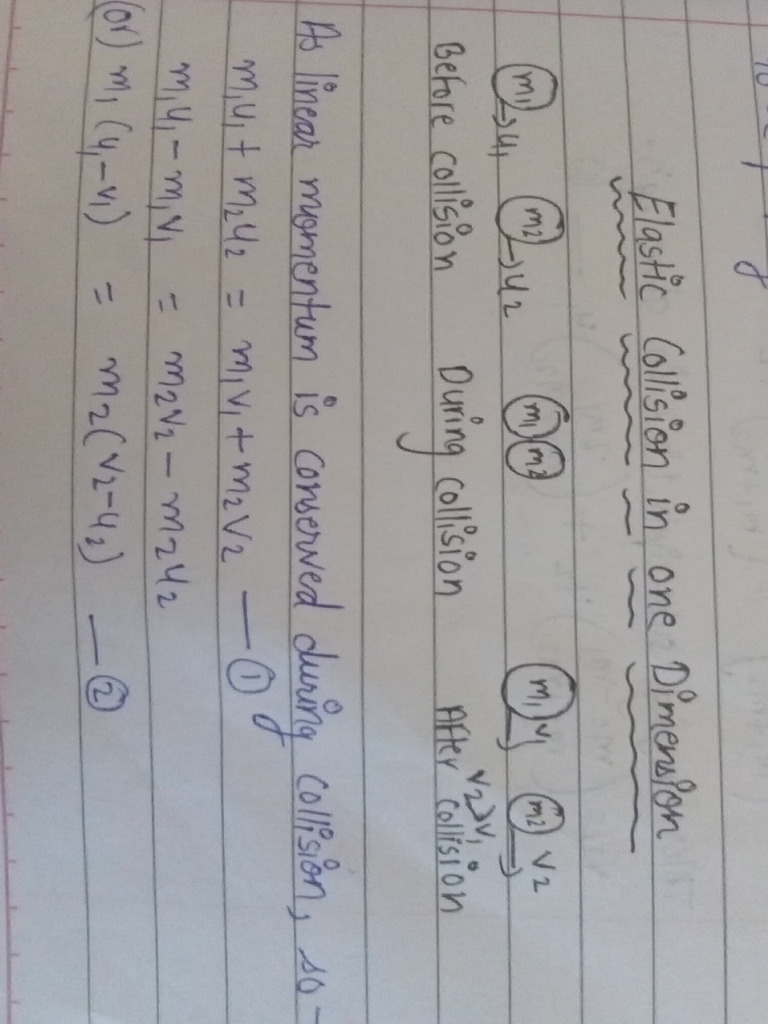 Elastic Collision in one Dimension
m₁ → u₁ m₂ → u₂ m₁ m₂ m₁ v₁ m₂ v₂
v₂>v₁
Before collision During collision After collision
As linear momentum is conserved during collision, so -
m₁u₁ + m₂u₂ = m₁v₁ + m₂v₂ — ①
m₁u₁ - m₁v₁ = m₂v₂ - m₂u₂
(or) m₁(u₁-v₁) = m₂(v₂-u₂) — ②